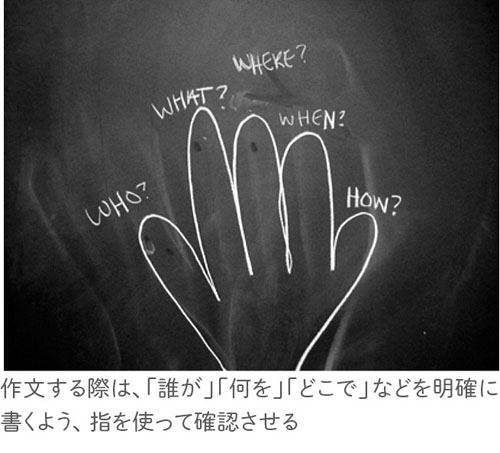 WHERE?
WHAT?
WHEN?
WHO?
HOW?
作文する際は、「誰が」「何を」「どこで」などを明確に
書くよう、指を使って確認させる